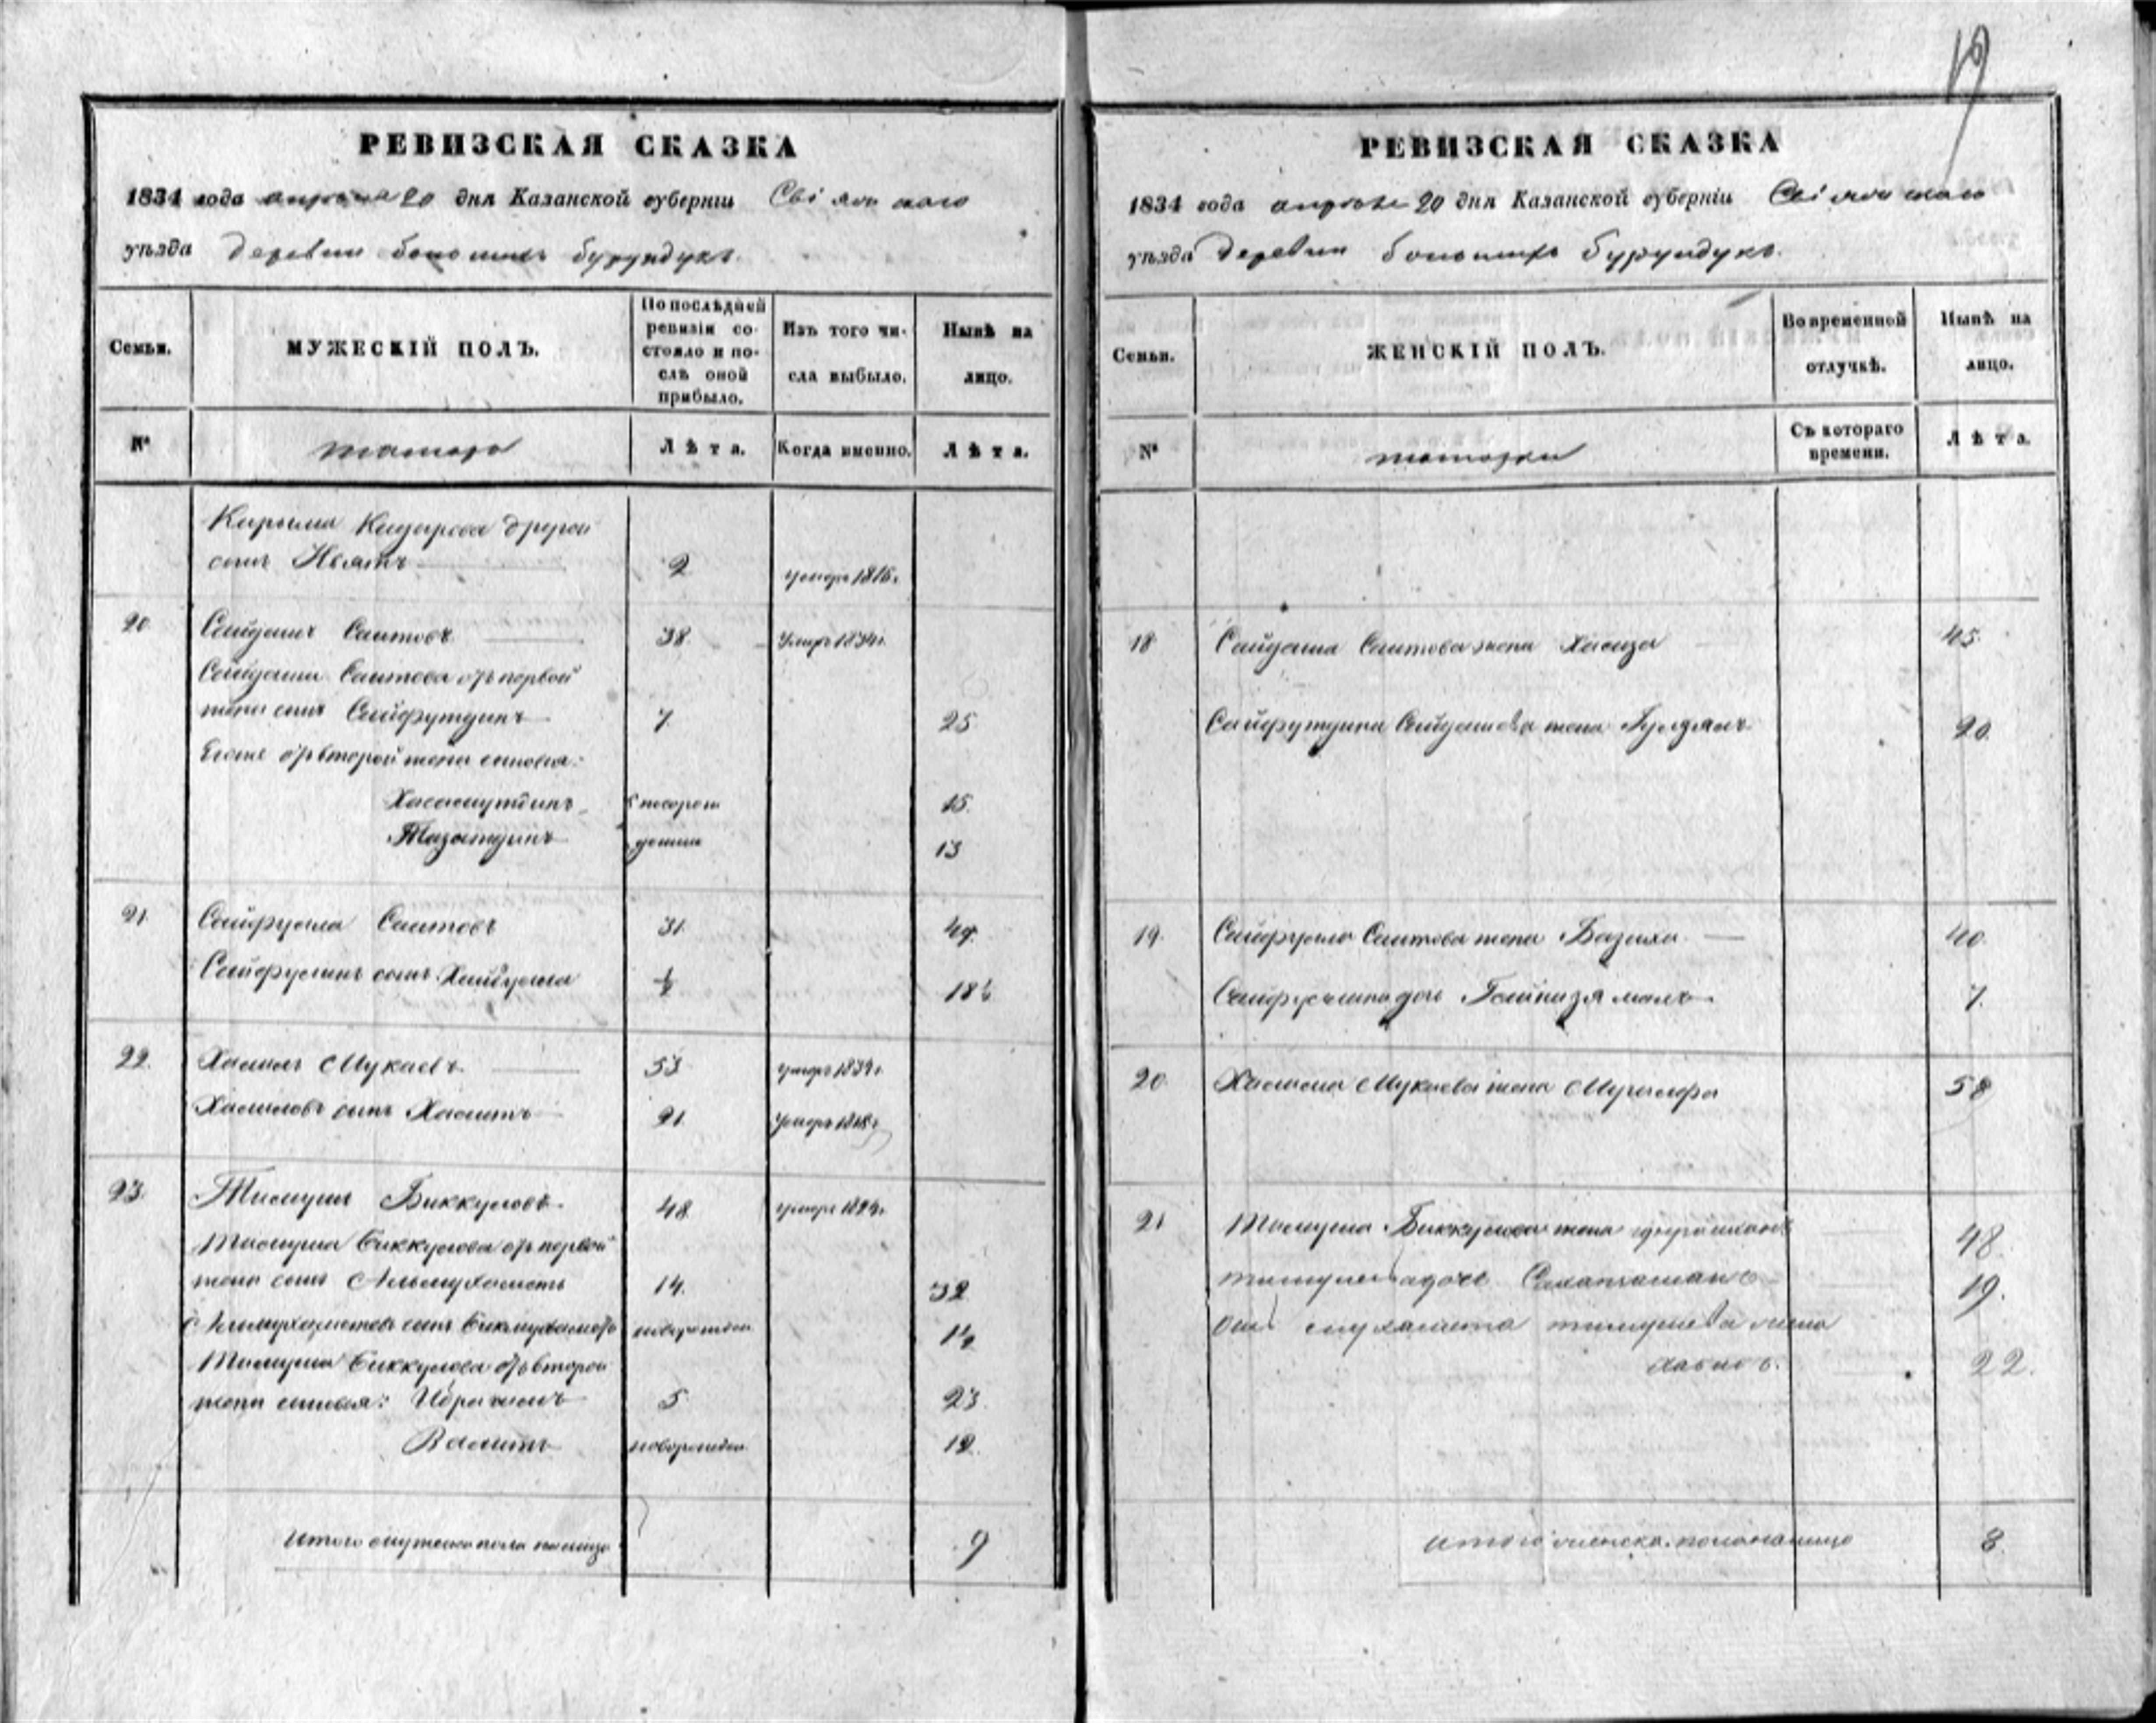 19
РЕВИЗСКАЯ СКАЗКА
1834 года апреля 20 дня Казанской губерніи Свіяжскаго
уѣзда деревни большихъ бурундукъ.
Семьи.
МУЖЕСКІЙ ПОЛЪ.
По послѣдней ревизіи со-
стояло и по-
слѣ оной
прибыло.
Изъ того чи-
сла выбыло.
Нынѣ на
лицо.
№
татара
Лѣта.
Когда именно.
Лѣта.
другой
сынъ 2 умеръ 1816г.
20 Сайдашъ Саитовъ 38. Умеръ 1834г.
Сайдаша Саитова отъ первой
жены сынъ Сайфутдинъ 7. 25
Егоже отъ второй жены сыновья:
Хасамутдинъ 15.
Тазатдинъ 13
21 Сайфулла Саитовъ 31. 49.
Сайфуллинъ сынъ Хайбулла ½ 18½
22. Халилъ Мукаевъ 53 умеръ
Халиловъ сынъ Халитъ 21 умеръ 1818г.
23. Тимушъ Биккуловъ 48 умеръ 1824г.
Тимуша Биккулова отъ первой
жены сынъ Альмухаметь 14. 32
сынъ Бикмухаметь новорожден 1½
Тимуша Биккулова отъ второй
жены сыновья: Ибрагимъ 5 23.
Валитъ новорожден 12.
Итого мужеска пола налицо 9
РЕВИЗСКАЯ СКАЗКА
1834 года апреля 20 дня Казанской губерніи Свіяжскаго
уѣзда деревни большихъ бурундукъ.
Семьи.
ЖЕНСКІЙ ПОЛЪ.
Во временной
отлучкѣ.
Нынѣ на
лицо.
№
татарки
Съ котораго
времени.
Лѣта.
18 Сайдаша Саитова жена 45.
Сайфутдина Сайдашева жена 20.
19. Сайфулла Саитова жена 40.
дочь 7.
20. Халила Мукаева жена 58
21 Тимуша Биккулова жена 48.
дочь 19.
Тимушева жена
22.
Итого женска пола налицо 8.